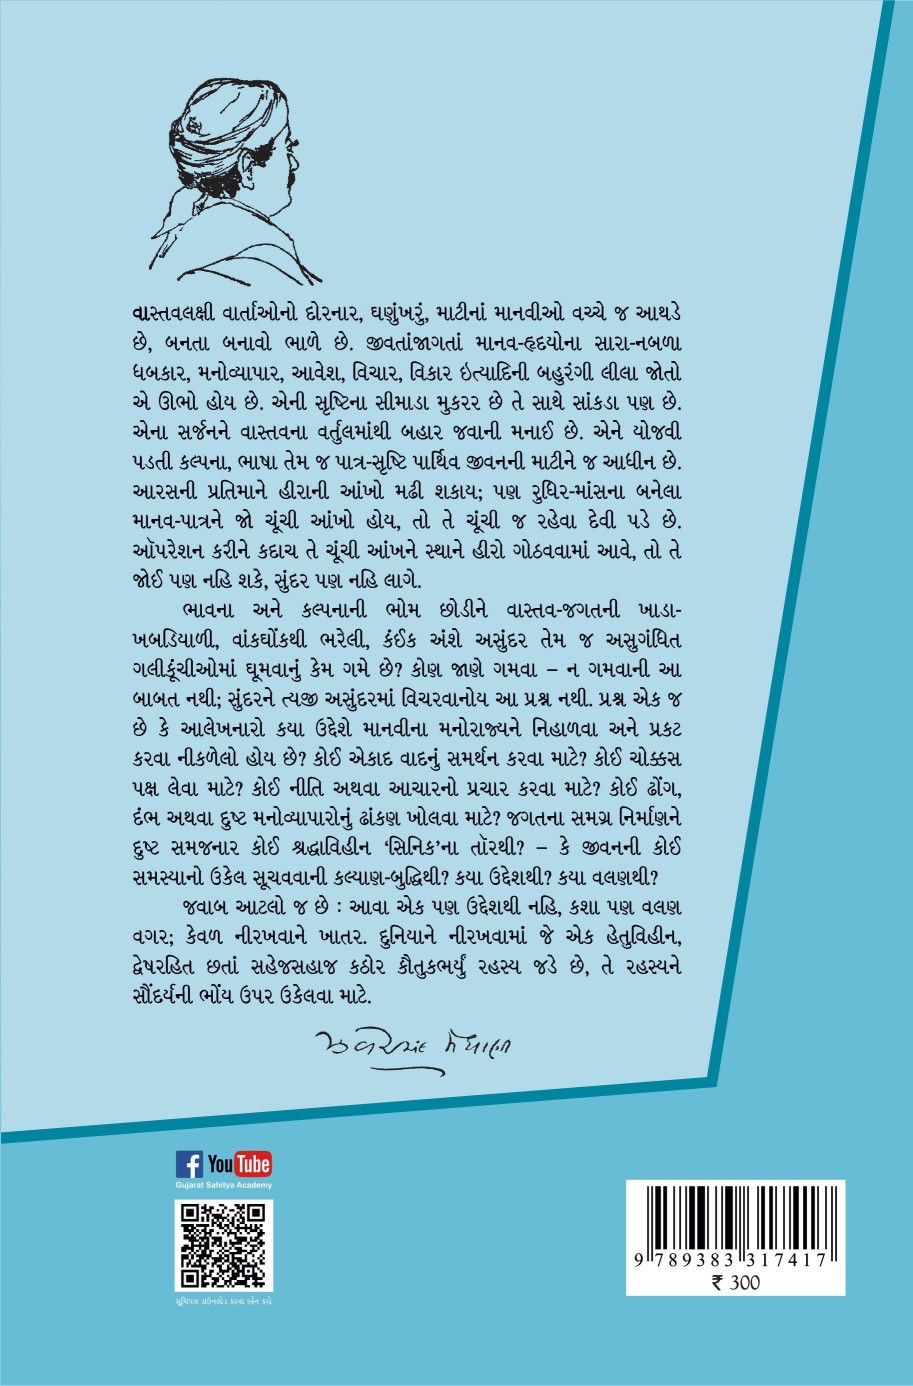 વાસ્તવલક્ષી વાર્તાઓનો દોરનાર, ઘણુંખરું, માટીનાં માનવીઓ વચ્ચે જ આથડે
છે, બનતા બનાવો ભાળે છે. જીવતાંજાગતાં માનવ-હૃદયોના સારા-નબળા
ધબકાર, મનોવ્યાપાર, આવેશ, વિચાર, વિકાર ઇત્યાદિની બહુરંગી લીલા જોતો
એ ઊભો હોય છે. એની સૃષ્ટિના સીમાડા મુકરર છે તે સાથે સાંકડા પણ છે.
એના સર્જનને વાસ્તવના વર્તુલમાંથી બહાર જવાની મનાઈ છે. એને યોજવી
પડતી કલ્પના, ભાષા તેમ જ પાત્ર-સૃષ્ટિ પાર્થિવ જીવનની માટીને જ આધીન છે.
આરસની પ્રતિમાને હીરાની આંખો મઢી શકાય; પણ રુધિર-માંસના બનેલા
માનવ-પાત્રને જો ચૂંચી આંખો હોય, તો તે ચૂંચી જ રહેવા દેવી પડે છે.
ઑપરેશન કરીને કદાચ તે ચૂંચી આંખને સ્થાને હીરો ગોઠવવામાં આવે, તો તે
જોઈ પણ નહિ શકે, સુંદર પણ નહિ લાગે.
ભાવના અને કલ્પનાની ભોમ છોડીને વાસ્તવ-જગતની ખાડા-
ખબડિયાળી, વાંકઘોંકથી ભરેલી, કંઈક અંશે અસુંદર તેમ જ અસુગંધિત
ગલીકૂંચીઓમાં ઘૂમવાનું કેમ ગમે છે? કોણ જાણે ગમવા – ન ગમવાની આ
બાબત નથી; સુંદરને ત્યજી અસુંદરમાં વિચરવાનોય આ પ્રશ્ન નથી. પ્રશ્ન એક જ
છે કે આલેખનારો કયા ઉદ્દેશે માનવીના મનોરાજ્યને નિહાળવા અને પ્રકટ
કરવા નીકળેલો હોય છે? કોઈ એકાદ વાદનું સમર્થન કરવા માટે? કોઈ ચોક્કસ
પક્ષ લેવા માટે? કોઈ નીતિ અથવા આચારનો પ્રચાર કરવા માટે? કોઈ ઢોંગ,
દંભ અથવા દુષ્ટ મનોવ્યાપારોનું ઢાંકણ ખોલવા માટે? જગતના સમગ્ર નિર્માણને
દુષ્ટ સમજનાર કોઈ શ્રદ્ધાવિહીન ‘સિનિક’ના તૉરથી? – કે જીવનની કોઈ
સમસ્યાનો ઉકેલ સૂચવવાની કલ્યાણ-બુદ્ધિથી? કયા ઉદ્દેશથી? કયા વલણથી?
જવાબ આટલો જ છે : આવા એક પણ ઉદ્દેશથી નહિ, કશા પણ વલણ
વગર; કેવળ નીરખવાને ખાતર. દુનિયાને નીરખવામાં જે એક હેતુવિહીન,
દ્વેષરહિત છતાં સહેજસહાજ કઠોર કૌતુકભર્યું રહસ્ય જડે છે, તે રહસ્યને
સૌંદર્યની ભોંય ઉપર ઉકેલવા માટે.
ઝવેરચંદ મેઘાણી
f YouTube
Gujarat Sahitya Academy
સૂચિપત્ર ડાઉનલોડ કરવા સ્કેન કરો
9 789383 317417
₹ 300